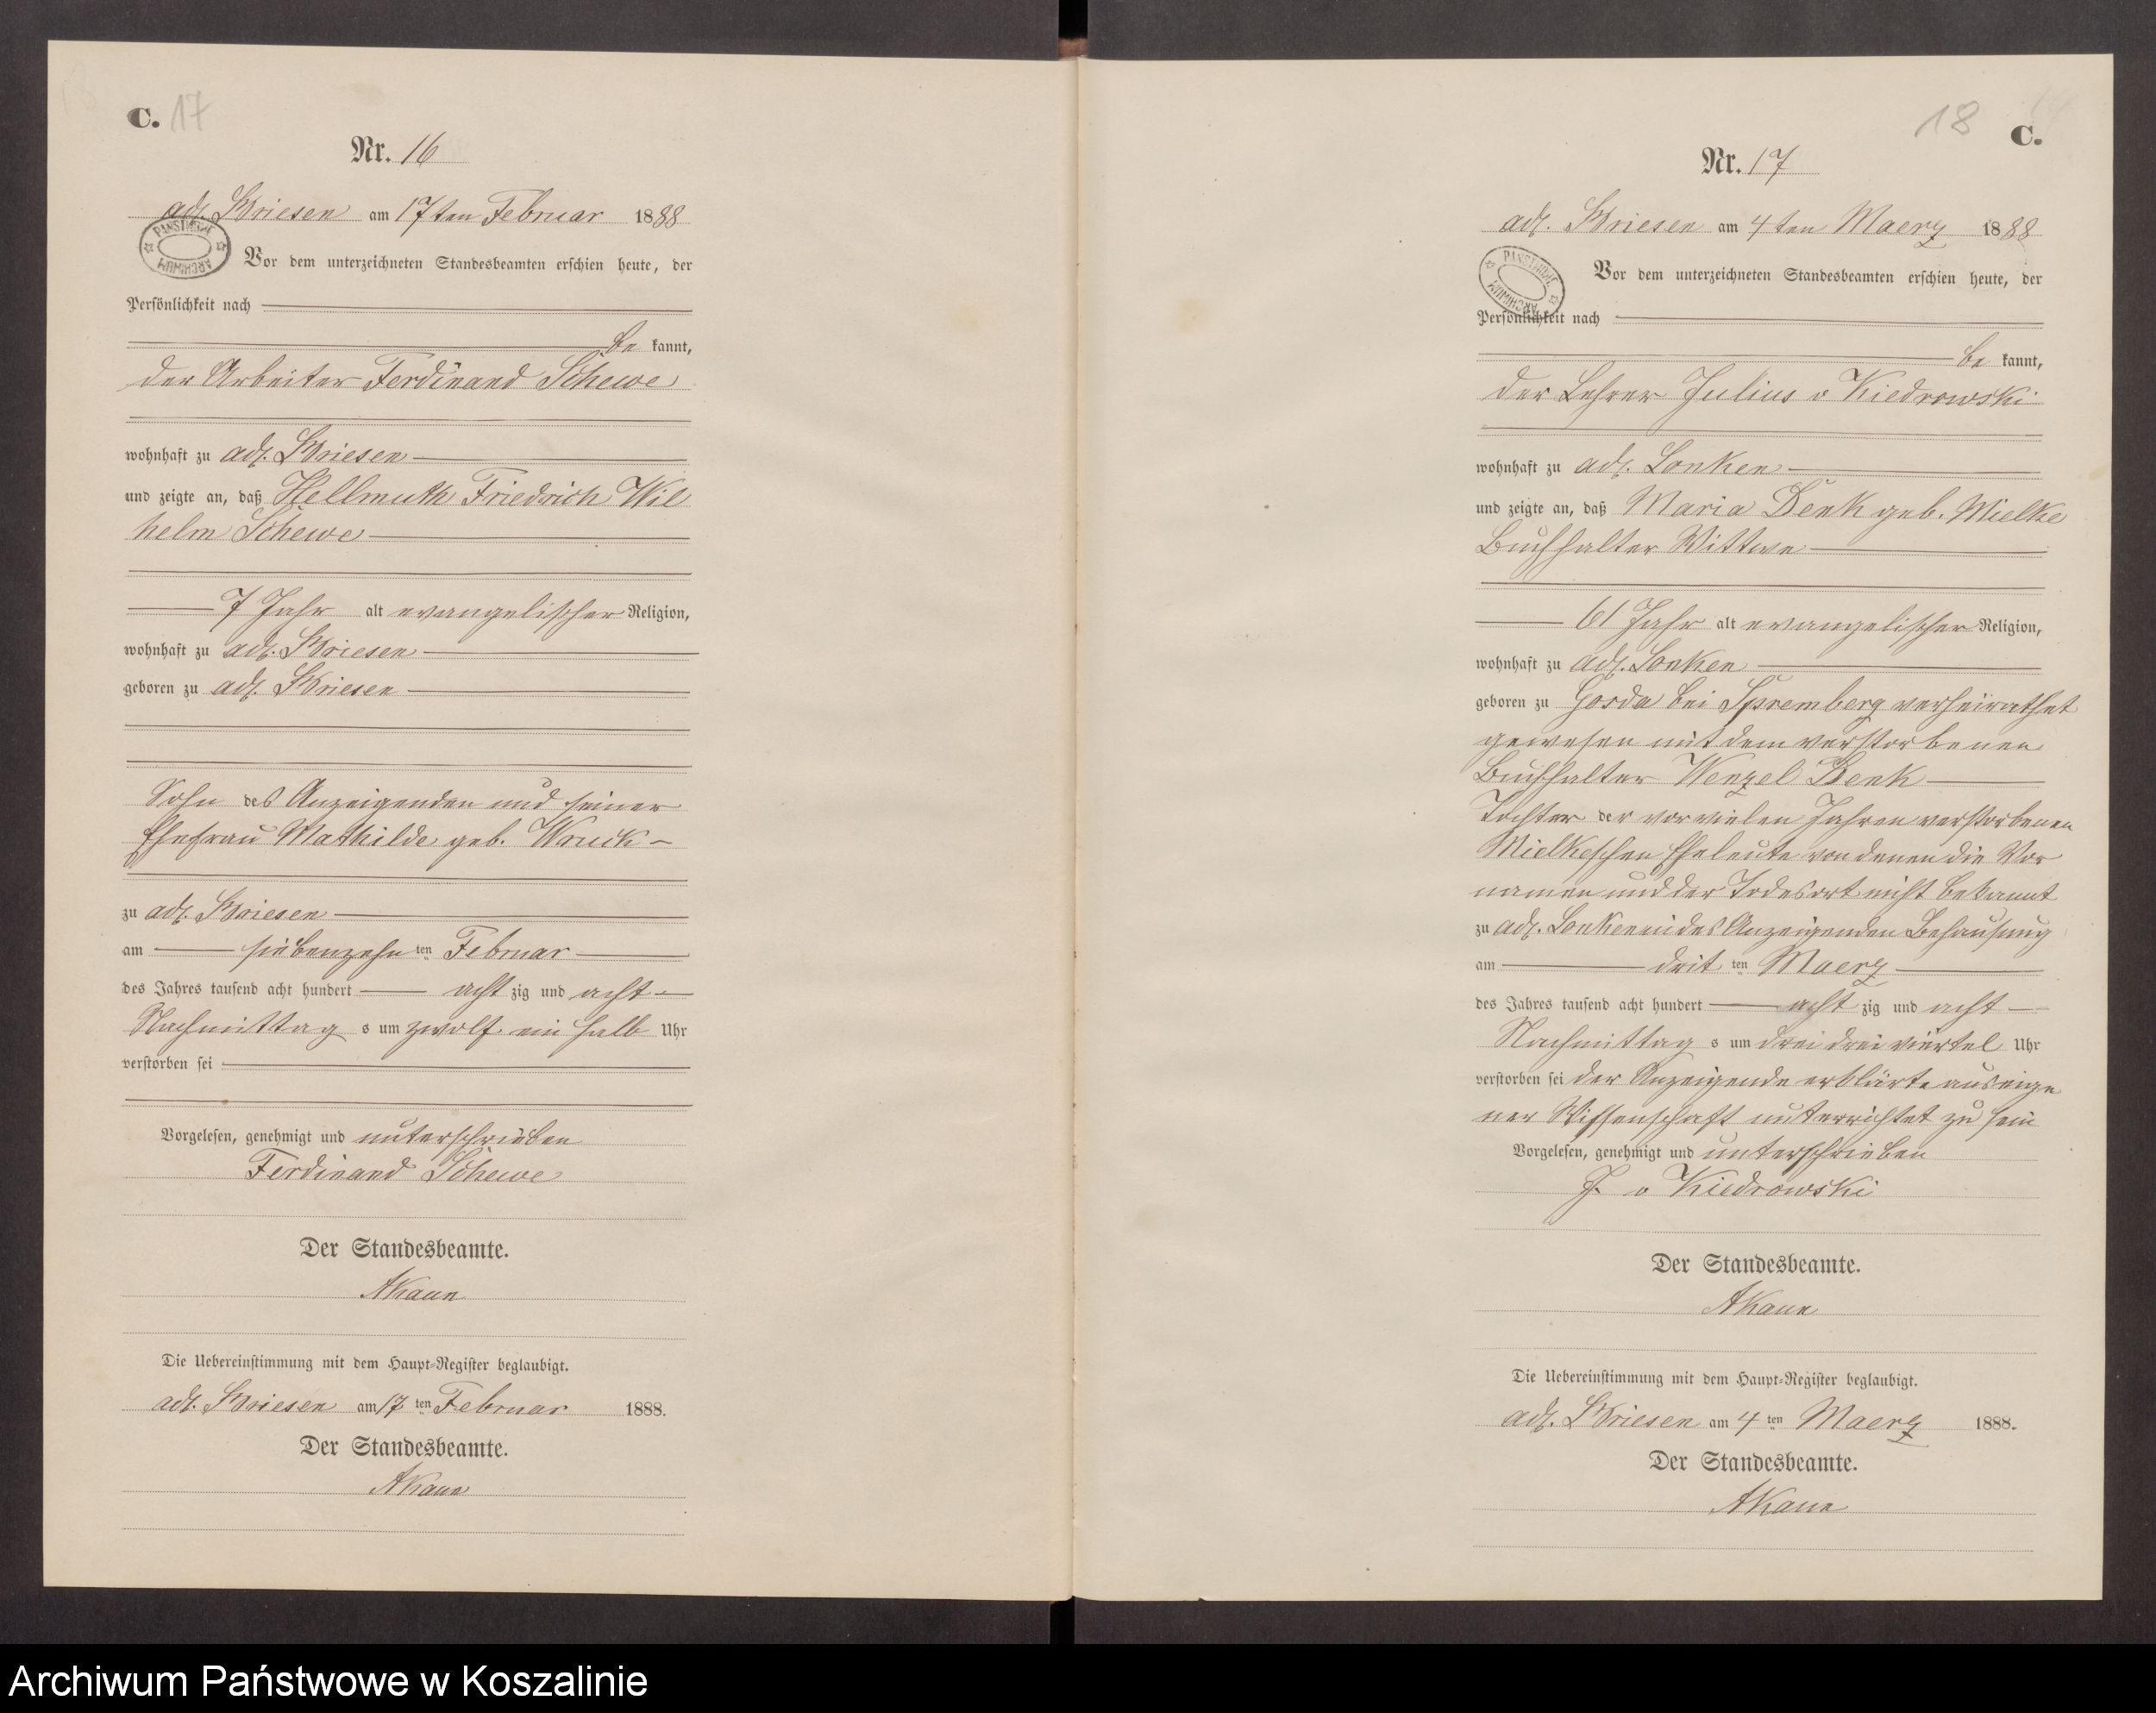 C. 17
Nr. 16
adl. Briesen am 17ten Februar 1888
PANSTWOWE ARCHIWUM
Vor dem unterzeichneten Standesbeamten erschien heute, der
Persönlichkeit nach
be kannt,
der Arbeiter Ferdinand Schewe
wohnhaft zu adl. Briesen
und zeigte an, daß Hellmuth Friedrich Wil
helm Schewe
7 Jahr alt evangelischer Religion,
wohnhaft zu adl. Briesen
geboren zu adl. Briesen
Sohn des Anzeigenden und seiner
Ehefrau Mathilde geb. Wruck
zu adl. Briesen
am siebenzehn ten Februar
des Jahres tausend acht hundert acht zig und acht
Nachmittag s um zwölf ein halb Uhr
verstorben sei
Vorgelesen, genehmigt und unterschrieben
Ferdinand Schewe
Der Standesbeamte.
AKaun
Die Uebereinstimmung mit dem Haupt-Register beglaubigt.
adl. Briesen am 17 ten Februar 1888.
Der Standesbeamte.
AKaun
18 C.
Nr. 17
adl. Briesen am 4 ten Maerz 1888
PANSTWOWE ARCHIWUM
Vor dem unterzeichneten Standesbeamten erschien heute, der
Persönlichkeit nach
be kannt,
der Lehrer Julius v Kiedrowski
wohnhaft zu adl. Lonken
und zeigte an, daß Maria Benk geb. Mielke
Buchhalter Wittwe
61 Jahr alt evangelischer Religion,
wohnhaft zu adl. Lonken
geboren zu Gosda bei Spremberg verheirathet
gewesen mit dem verstorbenen
Buchhalter Wenzel Benk
Tochter der vor vielen Jahren verstorbenen
Mielkeschen Eheleute von denen die Vor
namen und der Todesort nicht bekannt
zu adl. Lonken in des Anzeigenden Behausung
am drit ten Maerz
des Jahres tausend acht hundert acht zig und acht
Nachmittag s um drei dreiviertel Uhr
verstorben sei der Anzeigende erklärte aus eige
ner Wissenschaft unterrichtet zu sein
Vorgelesen, genehmigt und unterschrieben
J. v Kiedrowski
Der Standesbeamte.
AKaun
Die Uebereinstimmung mit dem Haupt-Register beglaubigt.
adl. Briesen am 4 ten Maerz 1888.
Der Standesbeamte.
AKaun
Archiwum Państwowe w Koszalinie